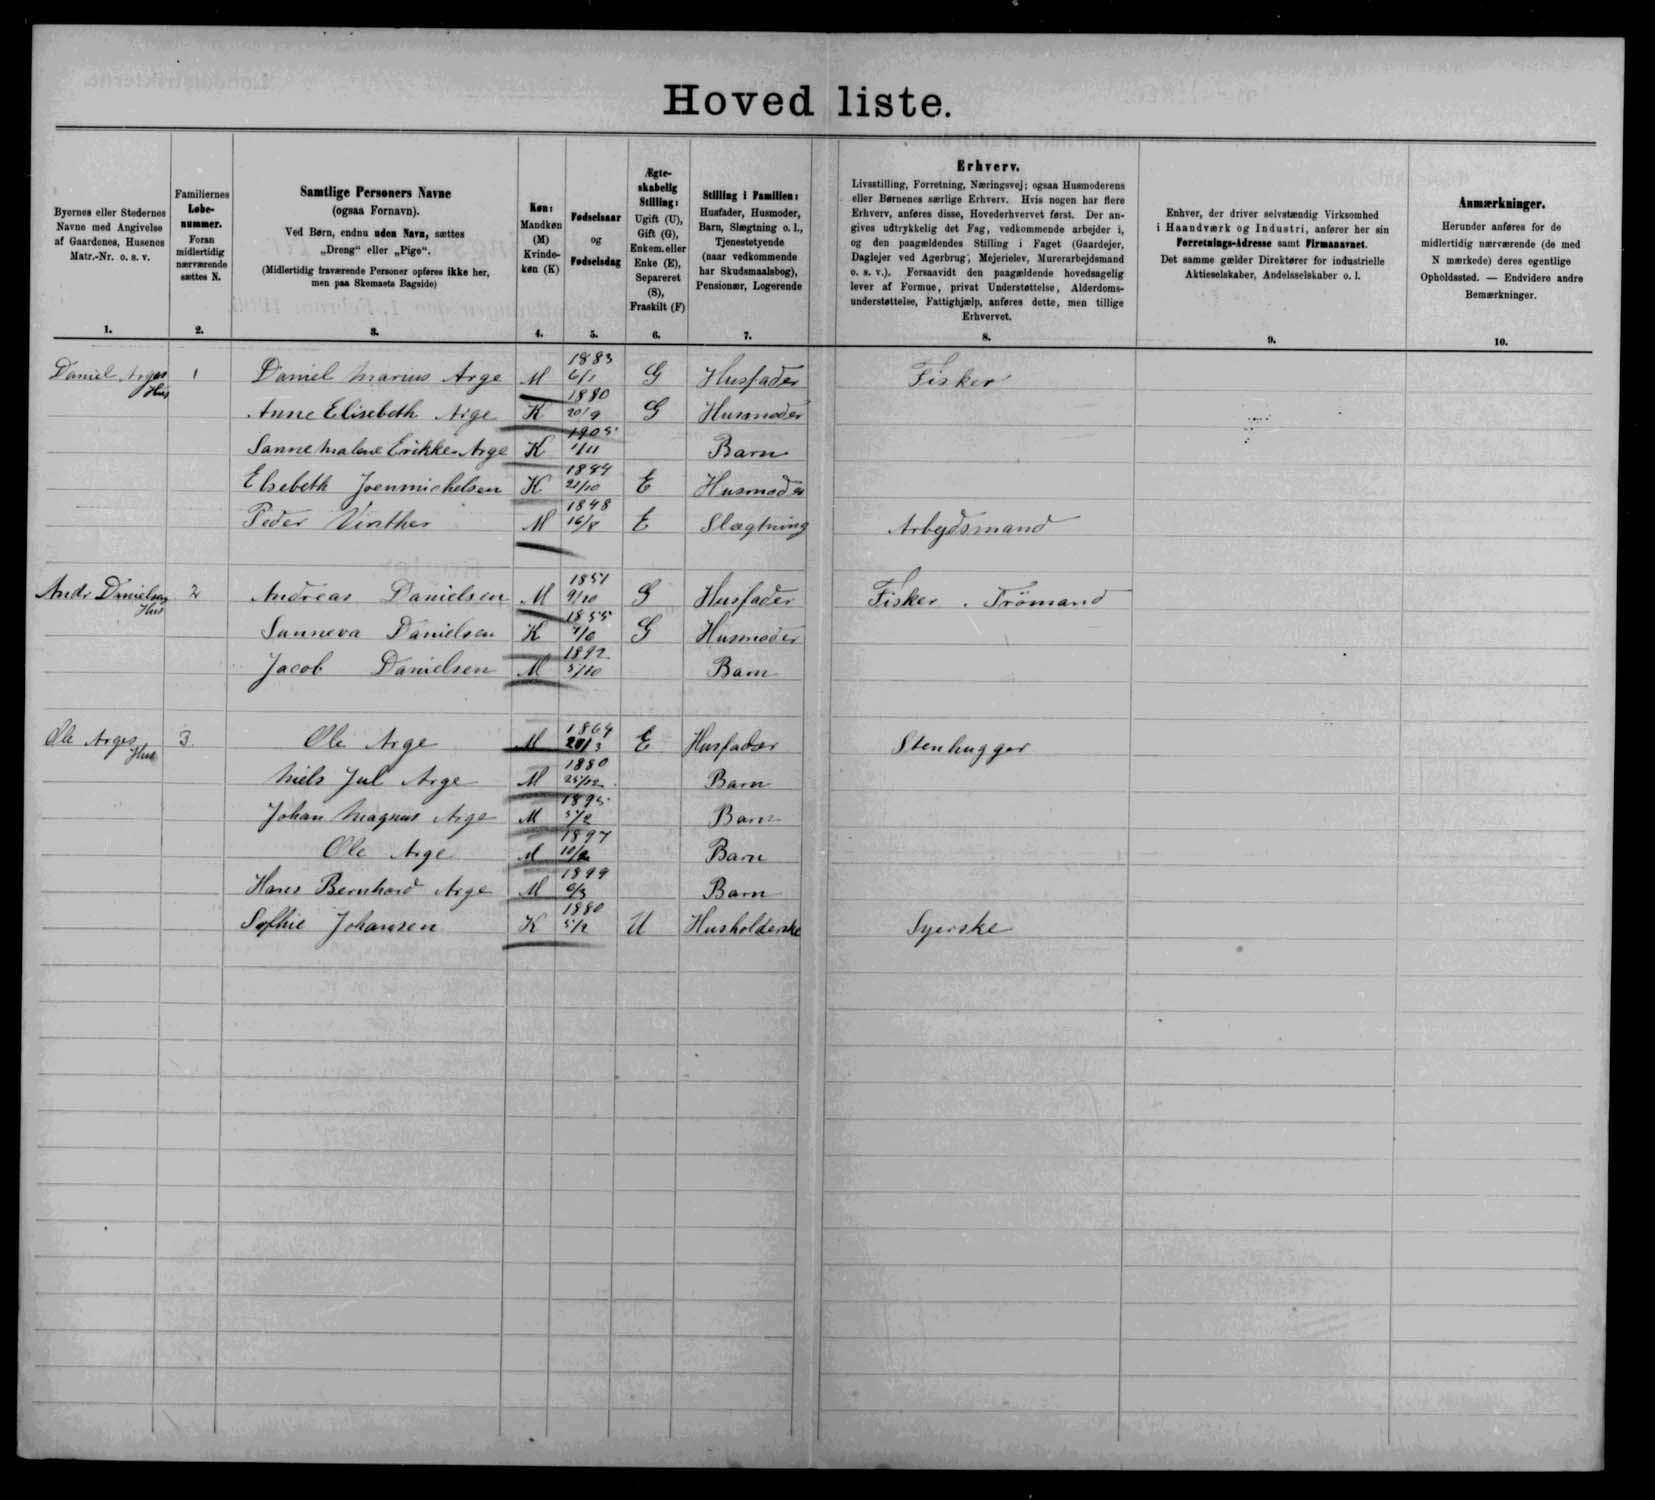 Hoved liste.
Byernes eller Stedernes
Navne med Angivelse
af Gaardenes, Husenes
Matr.-Nr. o. s. v.
1.
Familiernes
Løbe-
nummer.
Foran
midlertidig
nærværende
sættes N.
2.
Samtlige Personers Navne
(ogsaa Fornavn).
Ved Børn, endnu uden Navn, sættes
„Dreng“ eller „Pige“.
(Midlertidig fraværende Personer opføres ikke her,
men paa Skemaets Bagside)
3.
Køn:
Mandkøn
(M)
Kvinde-
køn (K)
4.
Fødselsaar
og
Fødselsdag
5.
Ægte-
skabelig
Stilling:
Ugift (U),
Gift (G),
Enkem. eller
Enke (E),
Separeret
(S),
Fraskilt (F)
6.
Stilling i Familien:
Husfader, Husmoder,
Barn, Slægtning o. l.,
Tjenestetyende
(naar vedkommende
har Skudsmaalsbog),
Pensionær, Logerende
7.
Erhverv.
Livsstilling, Forretning, Næringsvej; ogsaa Husmoderens
eller Børnenes særlige Erhverv. Hvis nogen har flere
Erhverv, anføres disse, Hovederhvervet først. Der an-
gives udtrykkelig det Fag, vedkommende arbejder i,
og den paagældendes Stilling i Faget (Gaardejer,
Daglejer ved Agerbrug, Mejerielev, Murerarbejdsmand
o. s. v.). Forsaavidt den paagældende hovedsagelig
lever af Formue, privat Understøttelse, Alderdoms-
understøttelse, Fattighjælp, anføres dette, men tillige
Erhvervet.
8.
Enhver, der driver selvstændig Virksomhed
i Haandværk og Industri, anfører her sin
Forretnings-Adresse samt Firmanavnet.
Det samme gælder Direktører for industrielle
Aktieselskaber, Andelsselskaber o. l.
9.
Anmærkninger.
Herunder anføres for de
midlertidig nærværende (de med
N mærkede) deres egentlige
Opholdssted. — Endvidere andre
Bemærkninger.
10.
Daniel Arges Hus 1 Daniel Marius Arge M 1883 6/1 G Husfader Fisker
Anne Elisebeth Arge K 1880 20/9 G Husmoder
Sanne Malene Erikke Arge K 1905 1/11 Barn
Elsebeth Joenmichelsen K 1844 21/10 E Husmoder
Peder Vinther M 1848 16/8 E Slægtning Arbejdsmand
Andr Danielsens Hus 2 Andreas Danielsen M 1851 9/10 G Husfader Fisker . Trömand
Sanneva Danielsen K 1855 G Husmoder
Jacob Danielsen M 1892 5/10 Barn
Ole Arges Hus 3 Ole Arge M 1864 E Husfader Stenhugger
Niels Jul Arge M 1880 25/12 Barn
Johan Magnus Arge M 1895 5/2 Barn
Ole Arge M 1897 Barn
Hans Bernhard Arge M 1899 6/3 Barn
Sophie Johansen K 1880 5/2 U Husholderske Syerske